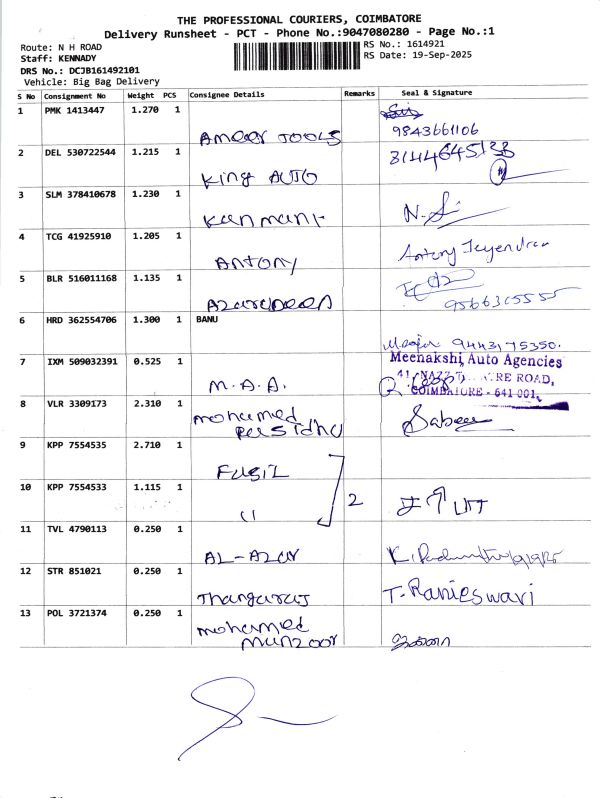 THE PROFESSIONAL COURIERS, COIMBATORE
Delivery Runsheet - PCT - Phone No.:9047080280 - Page No.:1
Route: N H ROAD RS No.: 1614921
Staff: KENNADY RS Date: 19-Sep-2025
DRS No.: DCJB161492101
Vehicle: Big Bag Delivery
S No Consignment No Weight PCS Consignee Details Remarks Seal & Signature
1 PMK 1413447 1.270 1
Ameer TOOLS 9843661106
2 DEL 530722544 1.215 1
King AUTO
3 SLM 378410678 1.230 1
Kanmani N.
4 TCG 41925910 1.205 1
Antony Antony Jeyendran
5 BLR 516011168 1.135 1
Azarudeen 9566365555
6 HRD 362554706 1.300 1 BANU
9443175350.
7 IXM 509032391 0.525 1 Meenakshi Auto Agencies
M.A.A. 41, RE ROAD,
COIMBATORE - 641 001.
8 VLR 3309173 2.310 1
mohamed
Rasidhu Sabeer
9 KPP 7554535 2.710 1
FUSIL
10 KPP 7554533 1.115 1 2
11
11 TVL 4790113 0.250 1
AL-Azar K.
12 STR 851021 0.250 1
Thangaraj T. Ranieswari
13 POL 3721374 0.250 1
mohamed
munzoor